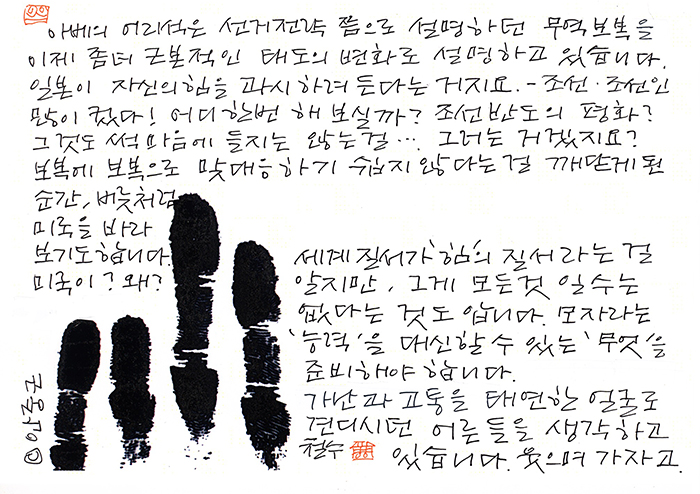 아베의 어리석은 선거전략 쯤으로 설명하던 무역보복을
이제 좀더 근본적인 태도의 변화로 설명하고 있습니다.
일본이 자신의 힘을 과시하려 든다는 거지요. - 조선·조선인
많이 컸다! 어디 한번 해 보실까? 조선반도의 평화?
그것도 썩 마음에 들지는 않는걸… 그러는 거겠지요?
보복에 보복으로 맞대응하기 쉽지 않다는 걸 깨닫게 된
순간, 버릇처럼
미국을 바라
보기도 합니다.
미국이? 왜?
세계질서가 '힘'의 질서라는 걸
알지만, 그게 모든것 일수는
없다는 것도 압니다. 모자라는
'능력'을 대신할 수 있는 '무엇'을
준비해야 합니다.
가난과 고통을 태연한 얼굴로
견디시던 어른들을 생각하고
있습니다. 웃으며 가자고.
철수
ⓒ안중근